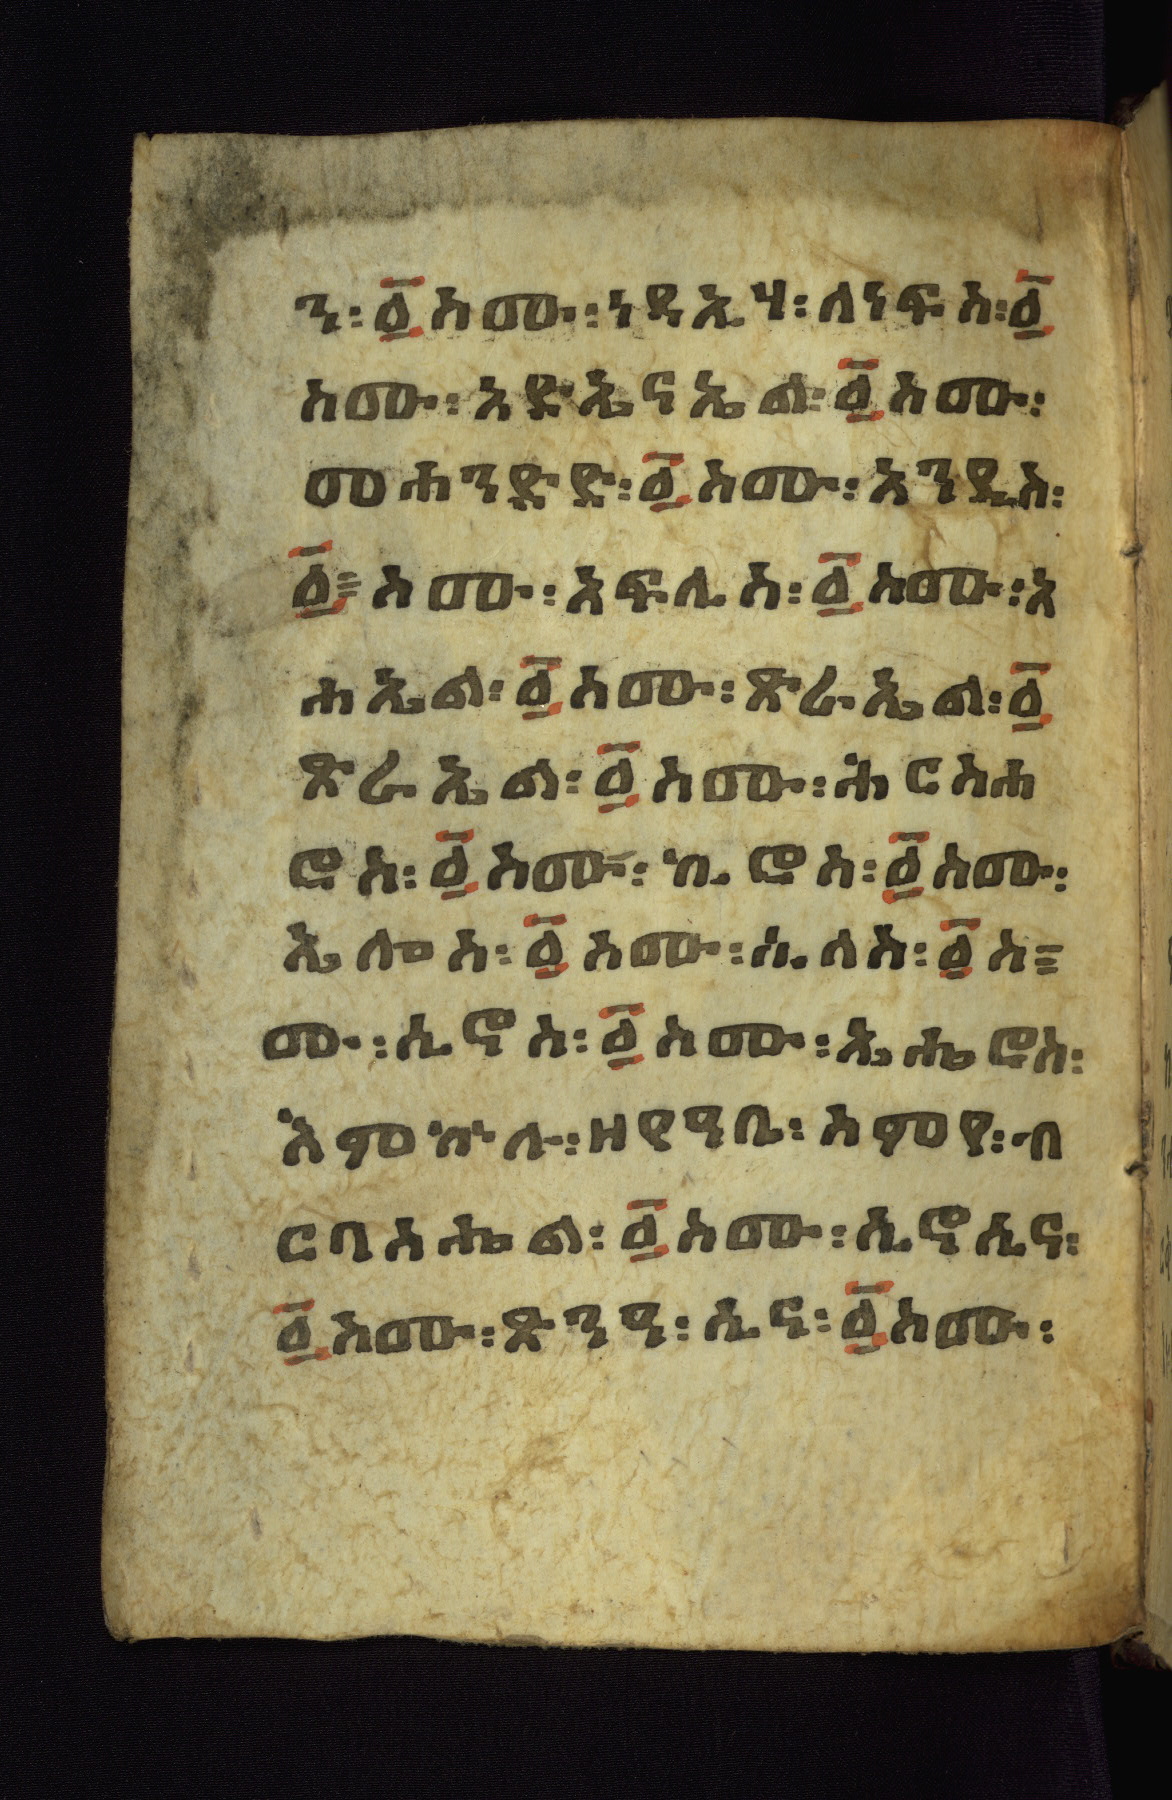 ን፡ ፩ ስሙ፡ ነዳኢሃ፡ ለነፍስ፡ ፩
ስሙ፡ አድኤናኤል፡ ፩ ስሙ፡
መሐንድድ፡ ፩ ስሙ፡ እንዲስ፡
፩፡ ስሙ፡ አፍሊስ፡ ፩ ስሙ፡ አ
ሐኤል፡ ፩ ስሙ፡ ጽራኤል፡ ፩
ጽራኤል፡ ፩ ስሙ፡ ሕርስሐ
ሮስ፡ ፩ ስሙ፡ ኪሮስ፡ ፩ ስሙ፡
ኤሎስ፡ ፩ ስሙ፡ ሲላስ፡ ፩ ስ
ሙ፡ ሲኖስ፡ ፩ ስሙ፡ ኤሔሮስ፡
እምኵሉ፡ ዘየዓቢ፡ ስምየ፡ ብ
ርባስሔል፡ ፩ ስሙ፡ ሊኖሲና፡
፩ ስሙ፡ ጽንዓ፡ ሲና፡ ፩ ስሙ፡